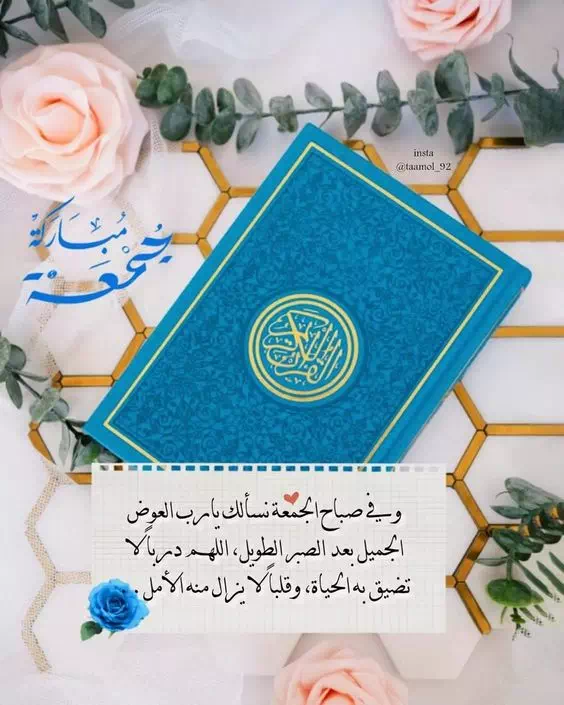 insta
@taamol_92
جمعة
مباركة
القرآن الكريم
وفي صباح الجمعة نسألك يارب العوض
الجميل بعد الصبر الطويل، اللهم درباً لا
تضيق به الحياة، وقلباً لا يزال منه الأمل .